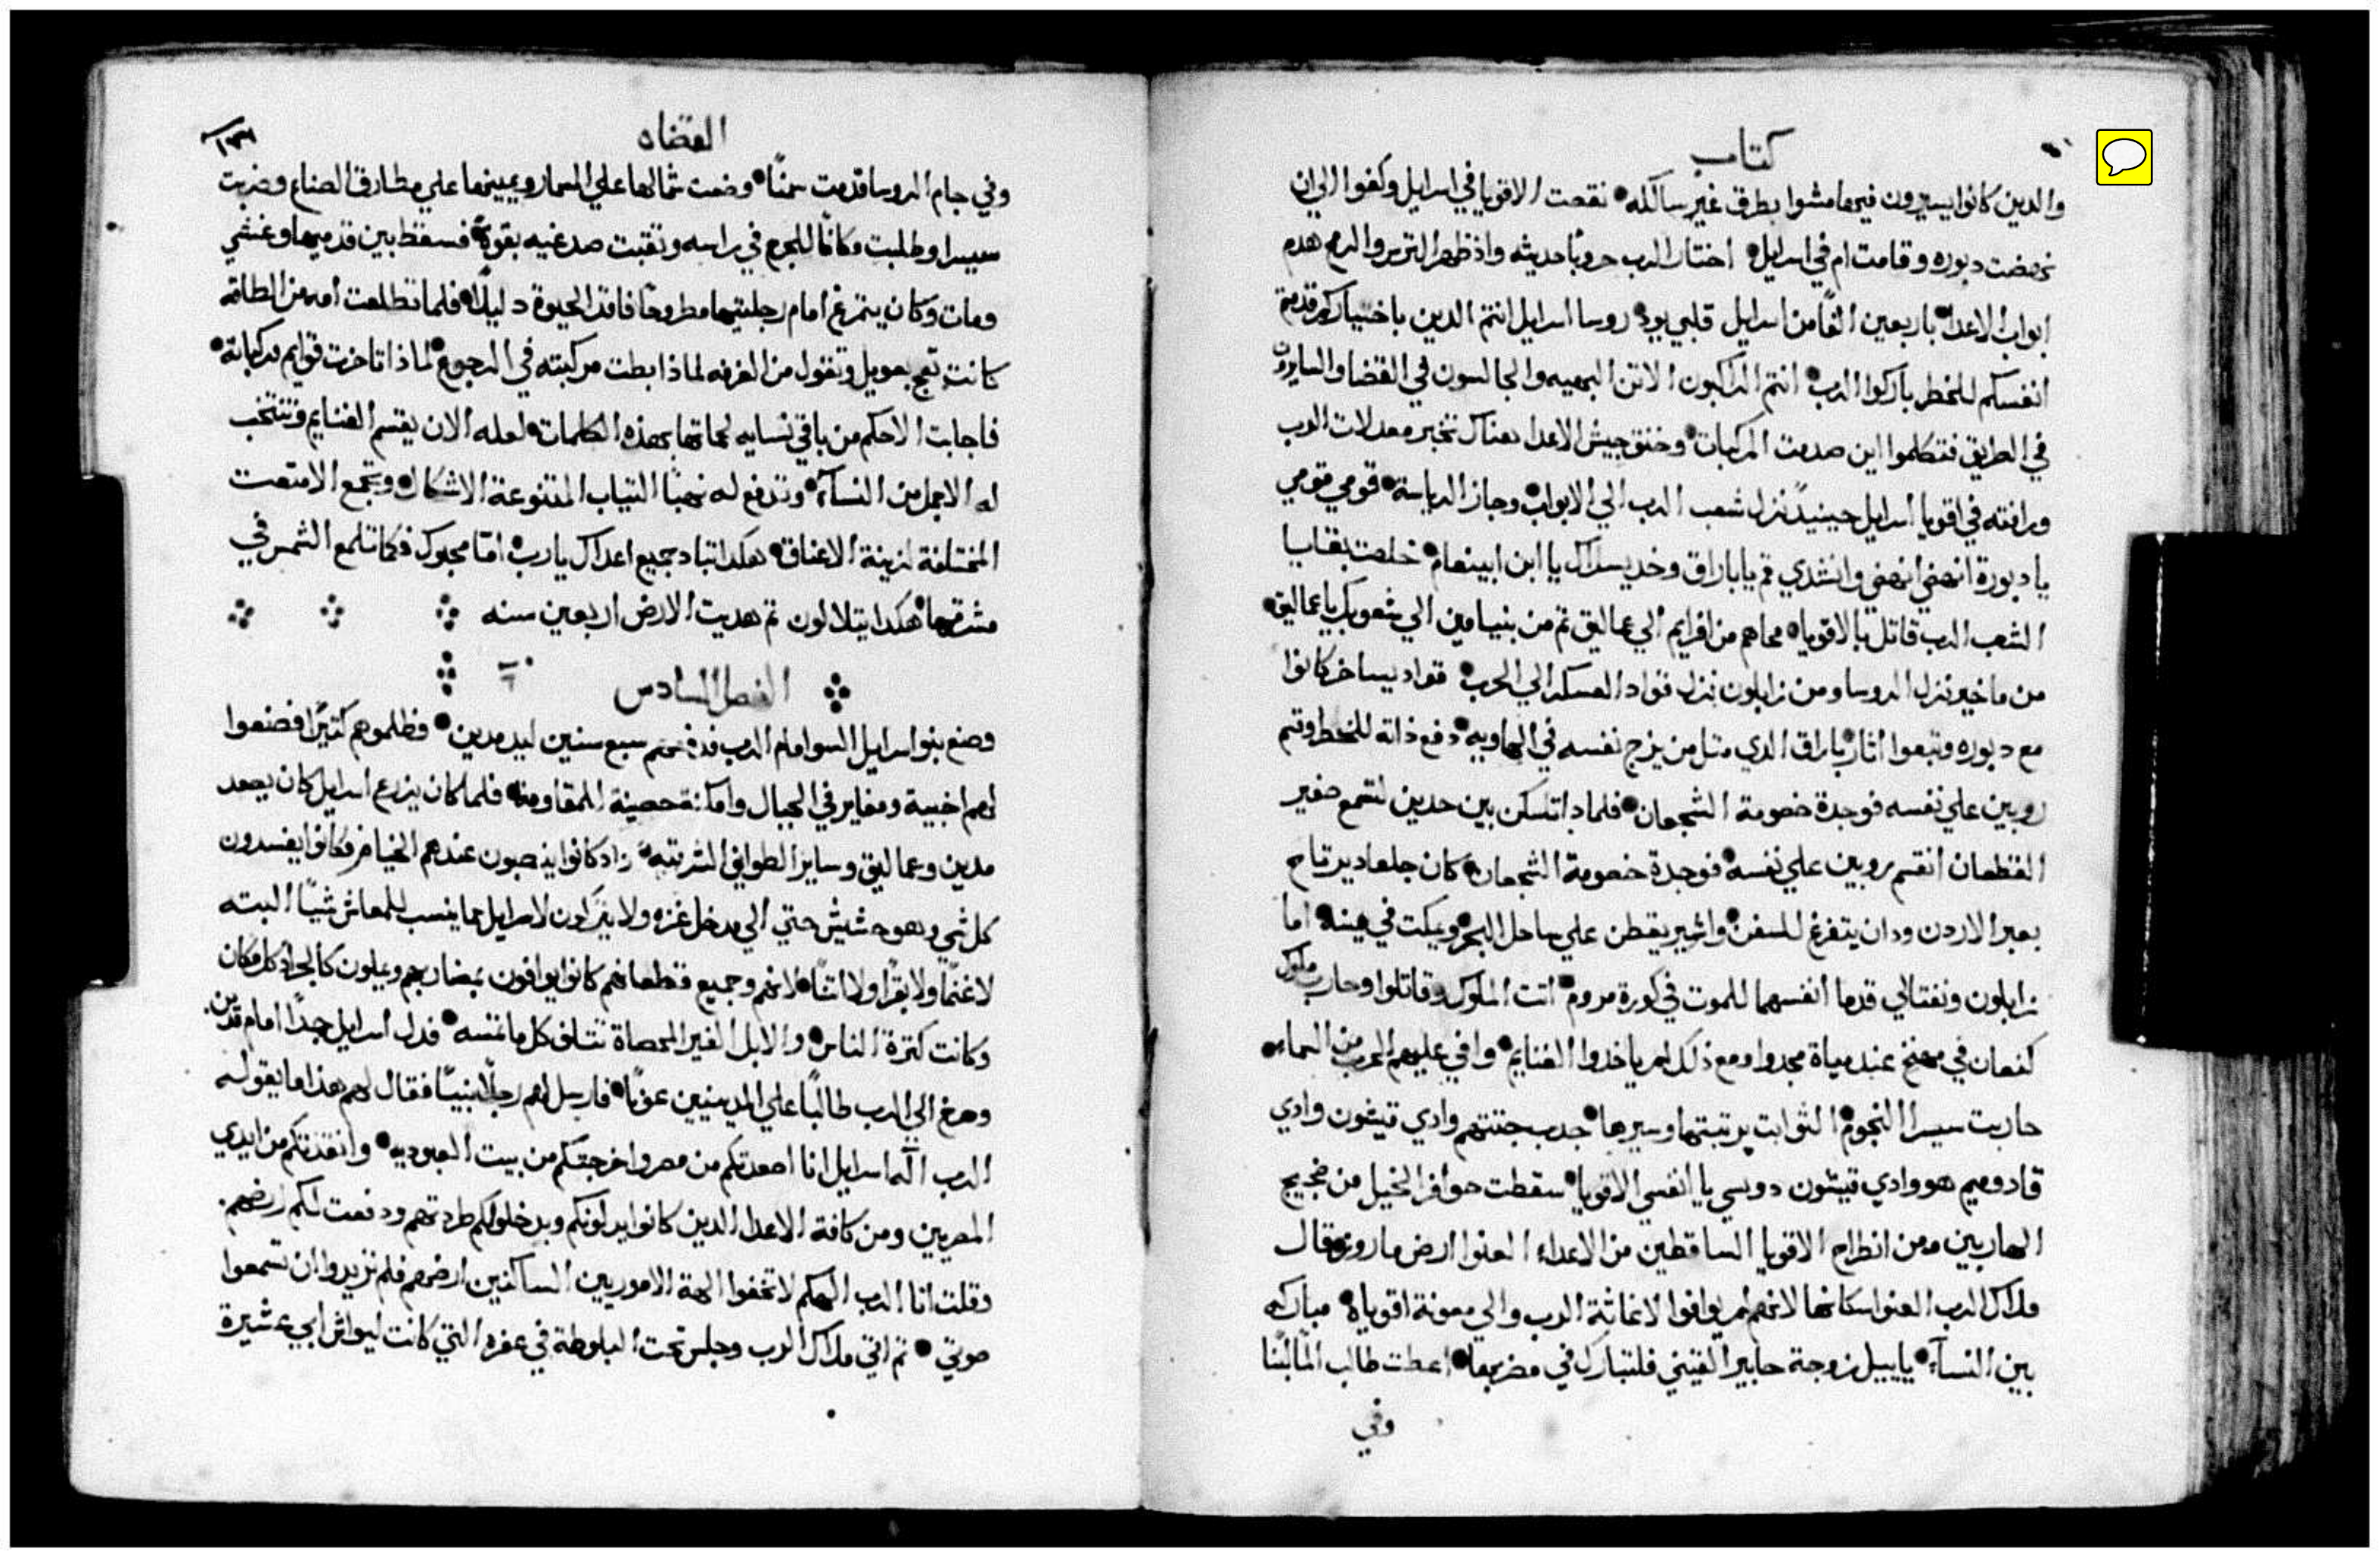 كتاب
والدين كانوا يسيرون فيها مشوا بطرق غير سالكه نقصت الاقويا في اسرايل وكفوا الي ان
نهضت دبوره وقامت ام في اسرايل اختار الرب حروبًا حديثه واذ ظهر الترس والرمح هدم
ابواب الاعدا باربعين الفًا من اسرايل قلبي يود روسا اسرايل انتم الدين باختياركم قدمتم
انفسكم للخطر باركوا الرب انتم الراكبون الاتن البهيه والجالسون في القضا والسايرون
في الطريق فتكلموا اين صدمت المركبات وخنق جيش الاعدا هناك تخبر معدلات الرب
ورافته في اقويا اسرايل حينيدٍ نزل شعب الرب الي الابواب وحاز الرياسة قومي قومي
يا دبورة انهضي انهضي وانشدي قم يا باراق وخد يسراك يا ابن ابينعام خلصت بقايا
الشعب الرب قاتل بالاقويا محاهم من افرايم الي عماليق تم من بنيامين الي شعوبك يا عماليق
من ماخير نزل الروسا ومن زابلون نزل قواد العسكر الي الحرب قواد يساخر كانوا
مع دبوره وتبعوا اثار باراق الدي متل من يزج نفسه في الهاويه دفع ذاته للخطر وقسم
روبين علي نفسه فوجدة خصومة الشجعان فلمادا تسكن بين حدين لتسمع صفير
القطعان انقسم روبين علي نفسه فوجدة خصومة الشجعان كان جلعاد يرتاح
بعبر الاردن ودان يتفرغ للسفن واشير يقطن علي ساحل البحر ويمكت في مينه اما
زابلون ونفتالي قدما انفسهما للموت في كورة مروم اتت الملوك وقاتلوا وحارب ملوك
كنعان في مهنخ عند مياة مجدوا ومع ذلك لم ياخدوا الغنايم وافي عليهم الحرب من السماء
حاربت سيسرا النجوم الثوابت برتبتها وسيرها جدب جتتهم وادي قيشون وادي
قادوميم هو وادي قيشون دوسي يا نفسي الاقويا سقطت حوافر الخيل من ضجيج
الهاربين ومن انطراح الاقويا الساقطين من الاعداء العنوا ارض ماروز قال
ملاك الرب العنوا سكانها لانهم لم يوافوا لاغاثة الرب والي معونة اقوياه مباركه
بين النسآء ياييل زوجة حابير القيني فلتبارك في مضربها اعطت طالب المآ لبنًا
وفي
القضاه
١٣١
وفي جام الروسا قدمت سمنًا وضعت شمالها علي المسمار ويمينها علي مطارق الصناع وضربت
سيسرا وطلبت مكانًا للجرح في راسه وتقبت صدغيه بقوةٍ فسقط بين قدميها وغشي
ومات وكان يتمرغ امام رجليتيها مطروحًا فاقد الحيوة دليلًا فلما تطلعت امه من الطاقه
كانت تعج بعويل وتقول من الغرفه لماذا ابطت مركبته في الرجوع لماذا تاخرت قوايم مركباته
فاجابت الاحكم من باقي نسايه لحماتها بهذه الكلمات لعله الان يقسم الغنايم وتنتخب
له الاجمل من النسآء وتدفع له نهبًا التياب المتنوعة الاشكال وتجمع الامتعت
المختلفة لزينة الاعناق هكدا تباد جميع اعداك يا رب امّا محبوك فكما تلمع الشمس في
مشرقها هكدا يتلالون تم هديت الارض اربعين سنه
الفصل السادس
وصنع بنوا اسرايل السو امام الرب فدفعهم سبع سنين ليد مدين فظلموهم كتيرًا فصنعوا
لهم اخبية ومغاير في الجبال وامكنة حصينة للمقاومة فلما كان يزرع اسرايل كان يصعد
مدين وعماليق وساير الطوايف الشرقيه واد كانوا ينصبون عندهم الخيام فكانوا يفسدون
كل شي وهو حشيش حتي الي مدخل غزه ولا يتركون لاسرايل مما ينسب للمعاش شيًا البته
لا غنمًا ولا بقرًا ولا اتنًا لانهم وجميع قطعانهم كانوا يوافون بمضاربهم ويملون كالجراد كل مكان
وكانت كترة الناس والابل الغير المحصاة تتلف كل ما تمسه فدل اسرايل جدًا امام مدين
وصرخ الي الرب طالبًا علي المدينيين عونًا فارسل لهم رجلًا نبيًا فقال لهم هذا ما يقوله
الرب اله اسرايل انا اصعدتكم من مصر واخرجتكم من بيت العبوديه وانقذتكم من ايدي
المصريين ومن كافة الاعدا الدين كانوا يدلونكم وبدخولكم طردتهم ودفعت لكم ارضهم
وقلت انا الرب الهكم لا تخفوا الهة الاموريين الساكنين ارضهم فلم تزيدوا ان تسمعوا
صوتي تم اتي ملاك الرب وجلس تحت البلوطة في عفره التي كانت ليواش ابي عشيرة